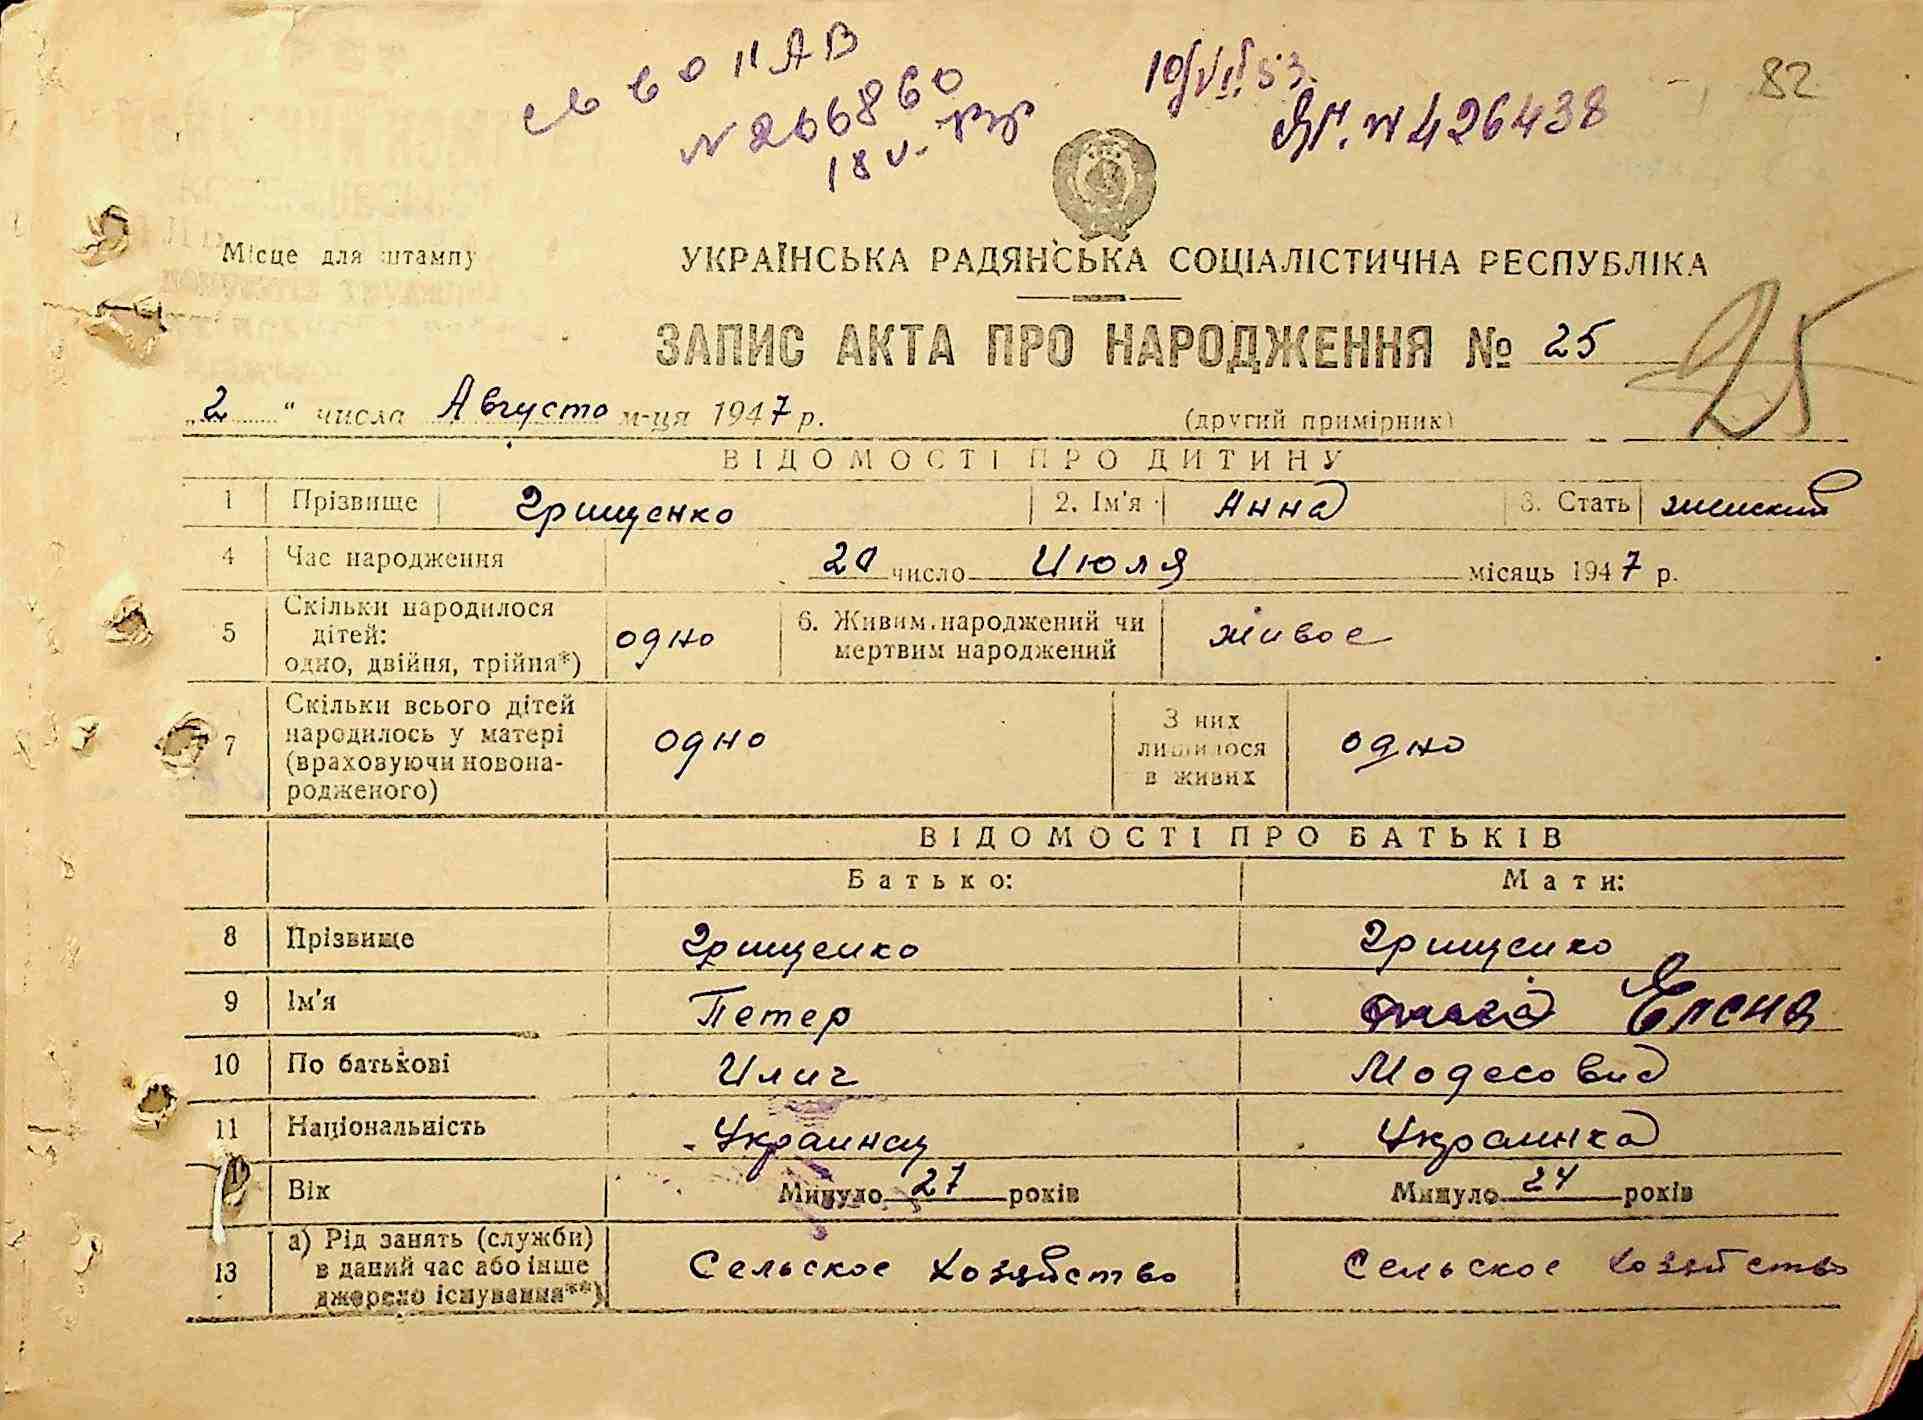 св во II АВ
N 266860
18 V-
10/VII 53.
ЯН. N 426438
82
Місце для штампу
УКРАЇНСЬКА РАДЯНСЬКА СОЦІАЛІСТИЧНА РЕСПУБЛІКА
ЗАПИС АКТА ПРО НАРОДЖЕННЯ № 25
25
„2“ числа Августа м-ця 1947 р. (другий примірник)
ВІДОМОСТІ ПРО ДИТИНУ
1 Прізвище Грищенко 2. Ім'я Анна 3. Стать женский
4 Час народження 20 число Июля місяць 1947 р.
5 Скільки народилося дітей: одно, двійня, трійня*) одно 6. Живим народжений чи мертвим народжений живое
7 Скільки всього дітей народилось у матері (враховуючи новонародженого) одно З них лишилося в живих одно
ВІДОМОСТІ ПРО БАТЬКІВ
Батько: Мати:
8 Прізвище Грищенко Грищенко
9 Ім'я Петер Елена
10 По батькові Илич Модесовна
11 Національність Украинец Украинка
Вік Минуло 27 років Минуло 24 років
13 а) Рід занять (служби) в даний час або інше джерело існування**) Сельское хозяйство Сельское хозяйство